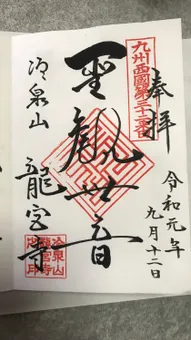 奉拝
九州西國第三十三番
令和元年
九月十二日
聖観世音
冷泉山
龍宮寺
冷泉山
龍宮寺
之印